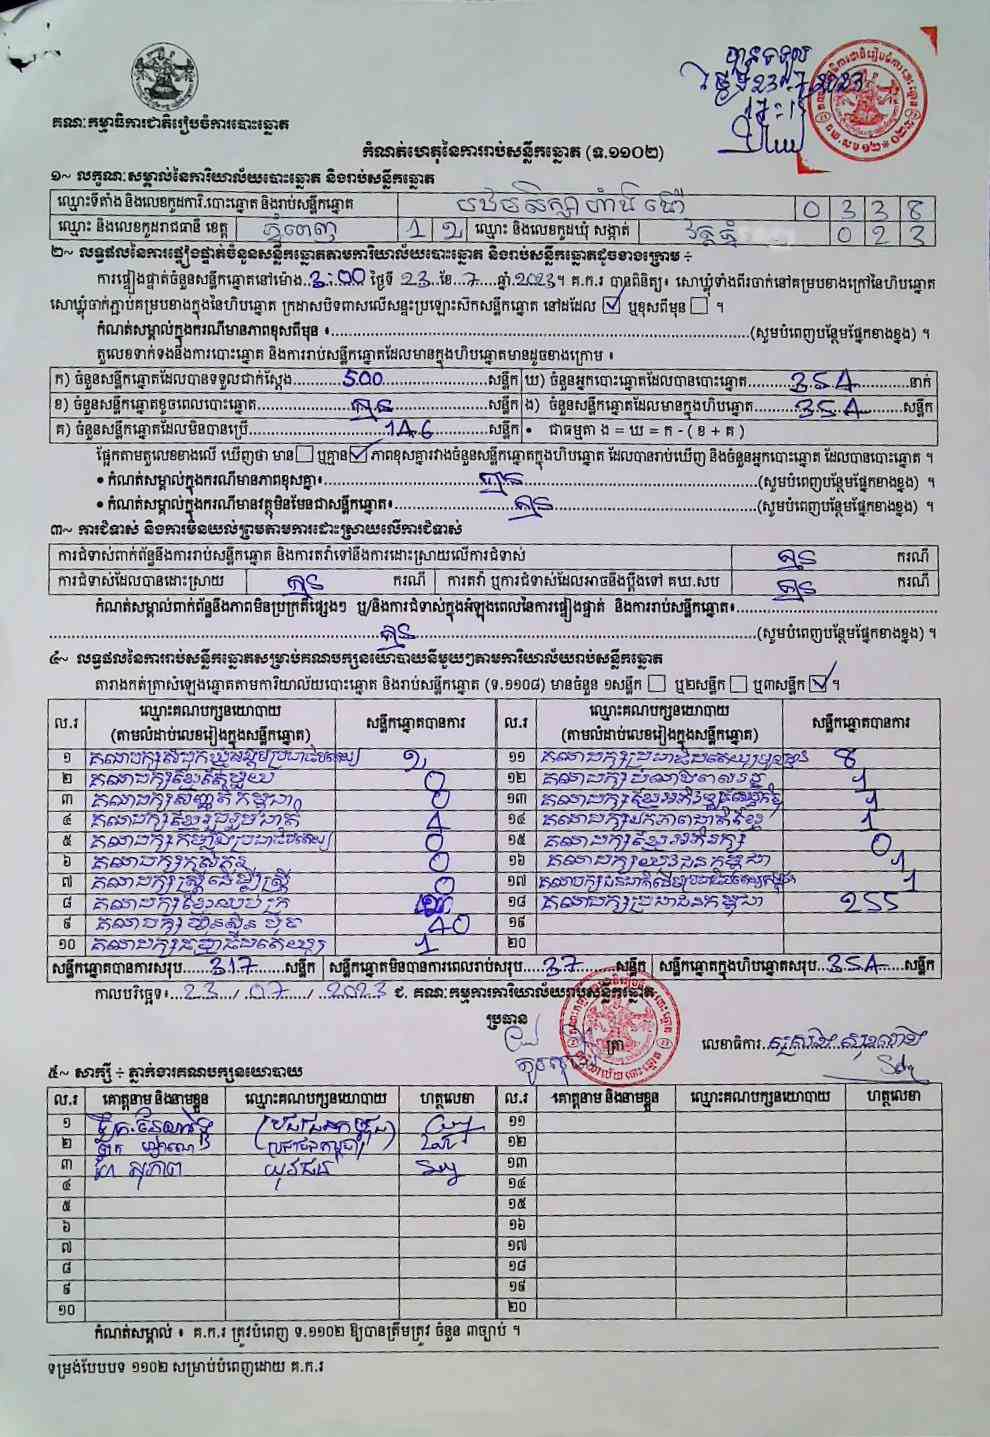 បានទទួល
ថ្ងៃទី 23.7.2023
គណៈកម្មាធិការជាតិរៀបចំការបោះឆ្នោត
កំណត់ហេតុនៃការរាប់សន្លឹកឆ្នោត (ទ.១១០២)
១~ លក្ខណៈសម្គាល់នៃការិយាល័យបោះឆ្នោត និងរាប់សន្លឹកឆ្នោត
ឈ្មោះទីតាំង និងលេខកូដការិ.បោះឆ្នោត និងរាប់សន្លឹកឆ្នោត 0 3 3 8
ឈ្មោះ និងលេខកូដរាជធានី ខេត្ត ភ្នំពេញ 1 2 ឈ្មោះ និងលេខកូដឃុំ សង្កាត់ វត្តភ្នំ 0 2 3
២~ លទ្ធផលនៃការផ្ទៀងផ្ទាត់ចំនួនសន្លឹកឆ្នោតតាមការិយាល័យបោះឆ្នោត និងរាប់សន្លឹកឆ្នោតដូចខាងក្រោម ÷
ការផ្ទៀងផ្ទាត់ចំនួនសន្លឹកឆ្នោតនៅម៉ោង..3:00 ថ្ងៃទី 23..ខែ..7....ឆ្នាំ.2023។ គ.ក.រ បានពិនិត្យ៖ សោឃ្លុំទាំងពីរចាក់នៅគម្របខាងក្រៅនៃហិបឆ្នោត
សោឃ្លុំចាក់ភ្ជាប់គម្របខាងក្នុងនៃហិបឆ្នោត ក្រដាសបិទពាសលើសន្ទះប្រឡោះសឹកសន្លឹកឆ្នោត នៅដដែល ☑ ឬខុសពីមុន ☐ ។
កំណត់សម្គាល់ក្នុងករណីមានភាពខុសពីមុន ៖..........(សូមបំពេញបន្ថែមផ្នែកខាងខ្នង) ។
តួលេខទាក់ទងនឹងការបោះឆ្នោត និងការរាប់សន្លឹកឆ្នោតដែលមានក្នុងហិបឆ្នោតមានដូចខាងក្រោម ៖
ក) ចំនួនសន្លឹកឆ្នោតដែលបានទទួលជាក់ស្តែង......500......សន្លឹក ឃ) ចំនួនអ្នកបោះឆ្នោតដែលបានបោះឆ្នោត......354......នាក់
ខ) ចំនួនសន្លឹកឆ្នោតខូចពេលបោះឆ្នោត......គ្មាន......សន្លឹក ង) ចំនួនសន្លឹកឆ្នោតដែលមានក្នុងហិបឆ្នោត......354......សន្លឹក
គ) ចំនួនសន្លឹកឆ្នោតដែលមិនបានប្រើ......146......សន្លឹក • ជាធម្មតា ង = ឃ = ក - ( ខ + គ )
ផ្អែកតាមតួលេខខាងលើ ឃើញថា មាន ☐ ឬគ្មាន ☑ ភាពខុសគ្នារវាងចំនួនសន្លឹកឆ្នោតក្នុងហិបឆ្នោត ដែលបានរាប់ឃើញ និងចំនួនអ្នកបោះឆ្នោត ដែលបានបោះឆ្នោត ។
• កំណត់សម្គាល់ក្នុងករណីមានភាពខុសគ្នា៖......គ្មាន......(សូមបំពេញបន្ថែមផ្នែកខាងខ្នង) ។
• កំណត់សម្គាល់ក្នុងករណីមានវត្ថុមិនមែនជាសន្លឹកឆ្នោត៖......គ្មាន......(សូមបំពេញបន្ថែមផ្នែកខាងខ្នង) ។
៣~ ការជំទាស់ និងការមិនយល់ព្រមតាមការដោះស្រាយលើការជំទាស់
ការជំទាស់ពាក់ព័ន្ធនឹងការរាប់សន្លឹកឆ្នោត និងការតវ៉ាទៅនឹងការដោះស្រាយលើការជំទាស់ គ្មាន ករណី
ការជំទាស់ដែលបានដោះស្រាយ គ្មាន ករណី ការតវ៉ា ឬការជំទាស់ដែលអាចនឹងប្តឹងទៅ គឃ.សប គ្មាន ករណី
កំណត់សម្គាល់ពាក់ព័ន្ធនឹងភាពមិនប្រក្រតីផ្សេងៗ ឬ/និងការជំទាស់ក្នុងអំឡុងពេលនៃការផ្ទៀងផ្ទាត់ និងការរាប់សន្លឹកឆ្នោត៖..........
......គ្មាន......(សូមបំពេញបន្ថែមផ្នែកខាងខ្នង) ។
៤~ លទ្ធផលនៃការរាប់សន្លឹកឆ្នោតសម្រាប់គណបក្សនយោបាយនីមួយៗតាមការិយាល័យរាប់សន្លឹកឆ្នោត
តារាងកត់ត្រាសំឡេងឆ្នោតតាមការិយាល័យបោះឆ្នោត និងរាប់សន្លឹកឆ្នោត (ទ.១១០៨) មានចំនួន ១សន្លឹក ☐ ឬ២សន្លឹក ☐ ឬ៣សន្លឹក ☑ ។
ល.រ ឈ្មោះគណបក្សនយោបាយ (តាមលំដាប់លេខរៀងក្នុងសន្លឹកឆ្នោត) សន្លឹកឆ្នោតបានការ ល.រ ឈ្មោះគណបក្សនយោបាយ (តាមលំដាប់លេខរៀងក្នុងសន្លឹកឆ្នោត) សន្លឹកឆ្នោតបានការ
១ គណបក្សសំបុកឃ្មុំសង្គមប្រជាធិបតេយ្យ 1 ១១ គណបក្សប្រជាធិបតេយ្យមូលដ្ឋាន 8
២ គណបក្សខ្មែរតែមួយ 0 ១២ 1
៣ គណបក្ស កម្ពុជា 0 ១៣ គណបក្សខ្មែរ 1
៤ គណបក្សខ្មែររួបរួមជាតិ 4 ១៤ គណបក្សឯកភាពជាតិខ្មែរ 1
៥ គណបក្សកម្លាំងប្រជាធិបតេយ្យ 0 ១៥ គណបក្សខ្មែរអភិរក្ស 0
៦ គណបក្សកសិករ 0 ១៦ គណបក្សយុវជនកម្ពុជា 1
៧ គណបក្សស្ត្រីដើម្បីស្ត្រី 0 ១៧ គណបក្ស 1
៨ គណបក្សខ្មែរឈប់ក្រ ១៨ គណបក្សប្រជាជនកម្ពុជា 255
៩ គណបក្សហ៊្វុនស៊ិនប៉ិច 40 ១៩
១០ គណបក្សធម្មាធិបតេយ្យ 1 ២០
សន្លឹកឆ្នោតបានការសរុប.....317.......សន្លឹក សន្លឹកឆ្នោតមិនបានការពេលរាប់សរុប.....37.......សន្លឹក សន្លឹកឆ្នោតក្នុងហិបឆ្នោតសរុប...354.....សន្លឹក
កាលបរិច្ឆេទ៖...23..../..07....../...2023 ជ. គណៈកម្មការការិយាល័យរាប់សន្លឹកឆ្នោត
ប្រធាន
ត្រា លេខាធិការ
៥~ សាក្សី ÷ ភ្នាក់ងារគណបក្សនយោបាយ
ល.រ គោត្តនាម និងនាមខ្លួន ឈ្មោះគណបក្សនយោបាយ ហត្ថលេខា ល.រ គោត្តនាម និងនាមខ្លួន ឈ្មោះគណបក្សនយោបាយ ហត្ថលេខា
១ ១១
២ ប្រជាជនកម្ពុជា ១២
៣ ហែ សុភាព យុវជន ១៣
៤ ១៤
៥ ១៥
៦ ១៦
៧ ១៧
៨ ១៨
៩ ១៩
១០ ២០
កំណត់សម្គាល់ ៖ គ.ក.រ ត្រូវបំពេញ ទ.១១០២ ឱ្យបានត្រឹមត្រូវ ចំនួន ៣ច្បាប់ ។
ទម្រង់បែបបទ ១១០២ សម្រាប់បំពេញដោយ គ.ក.រ